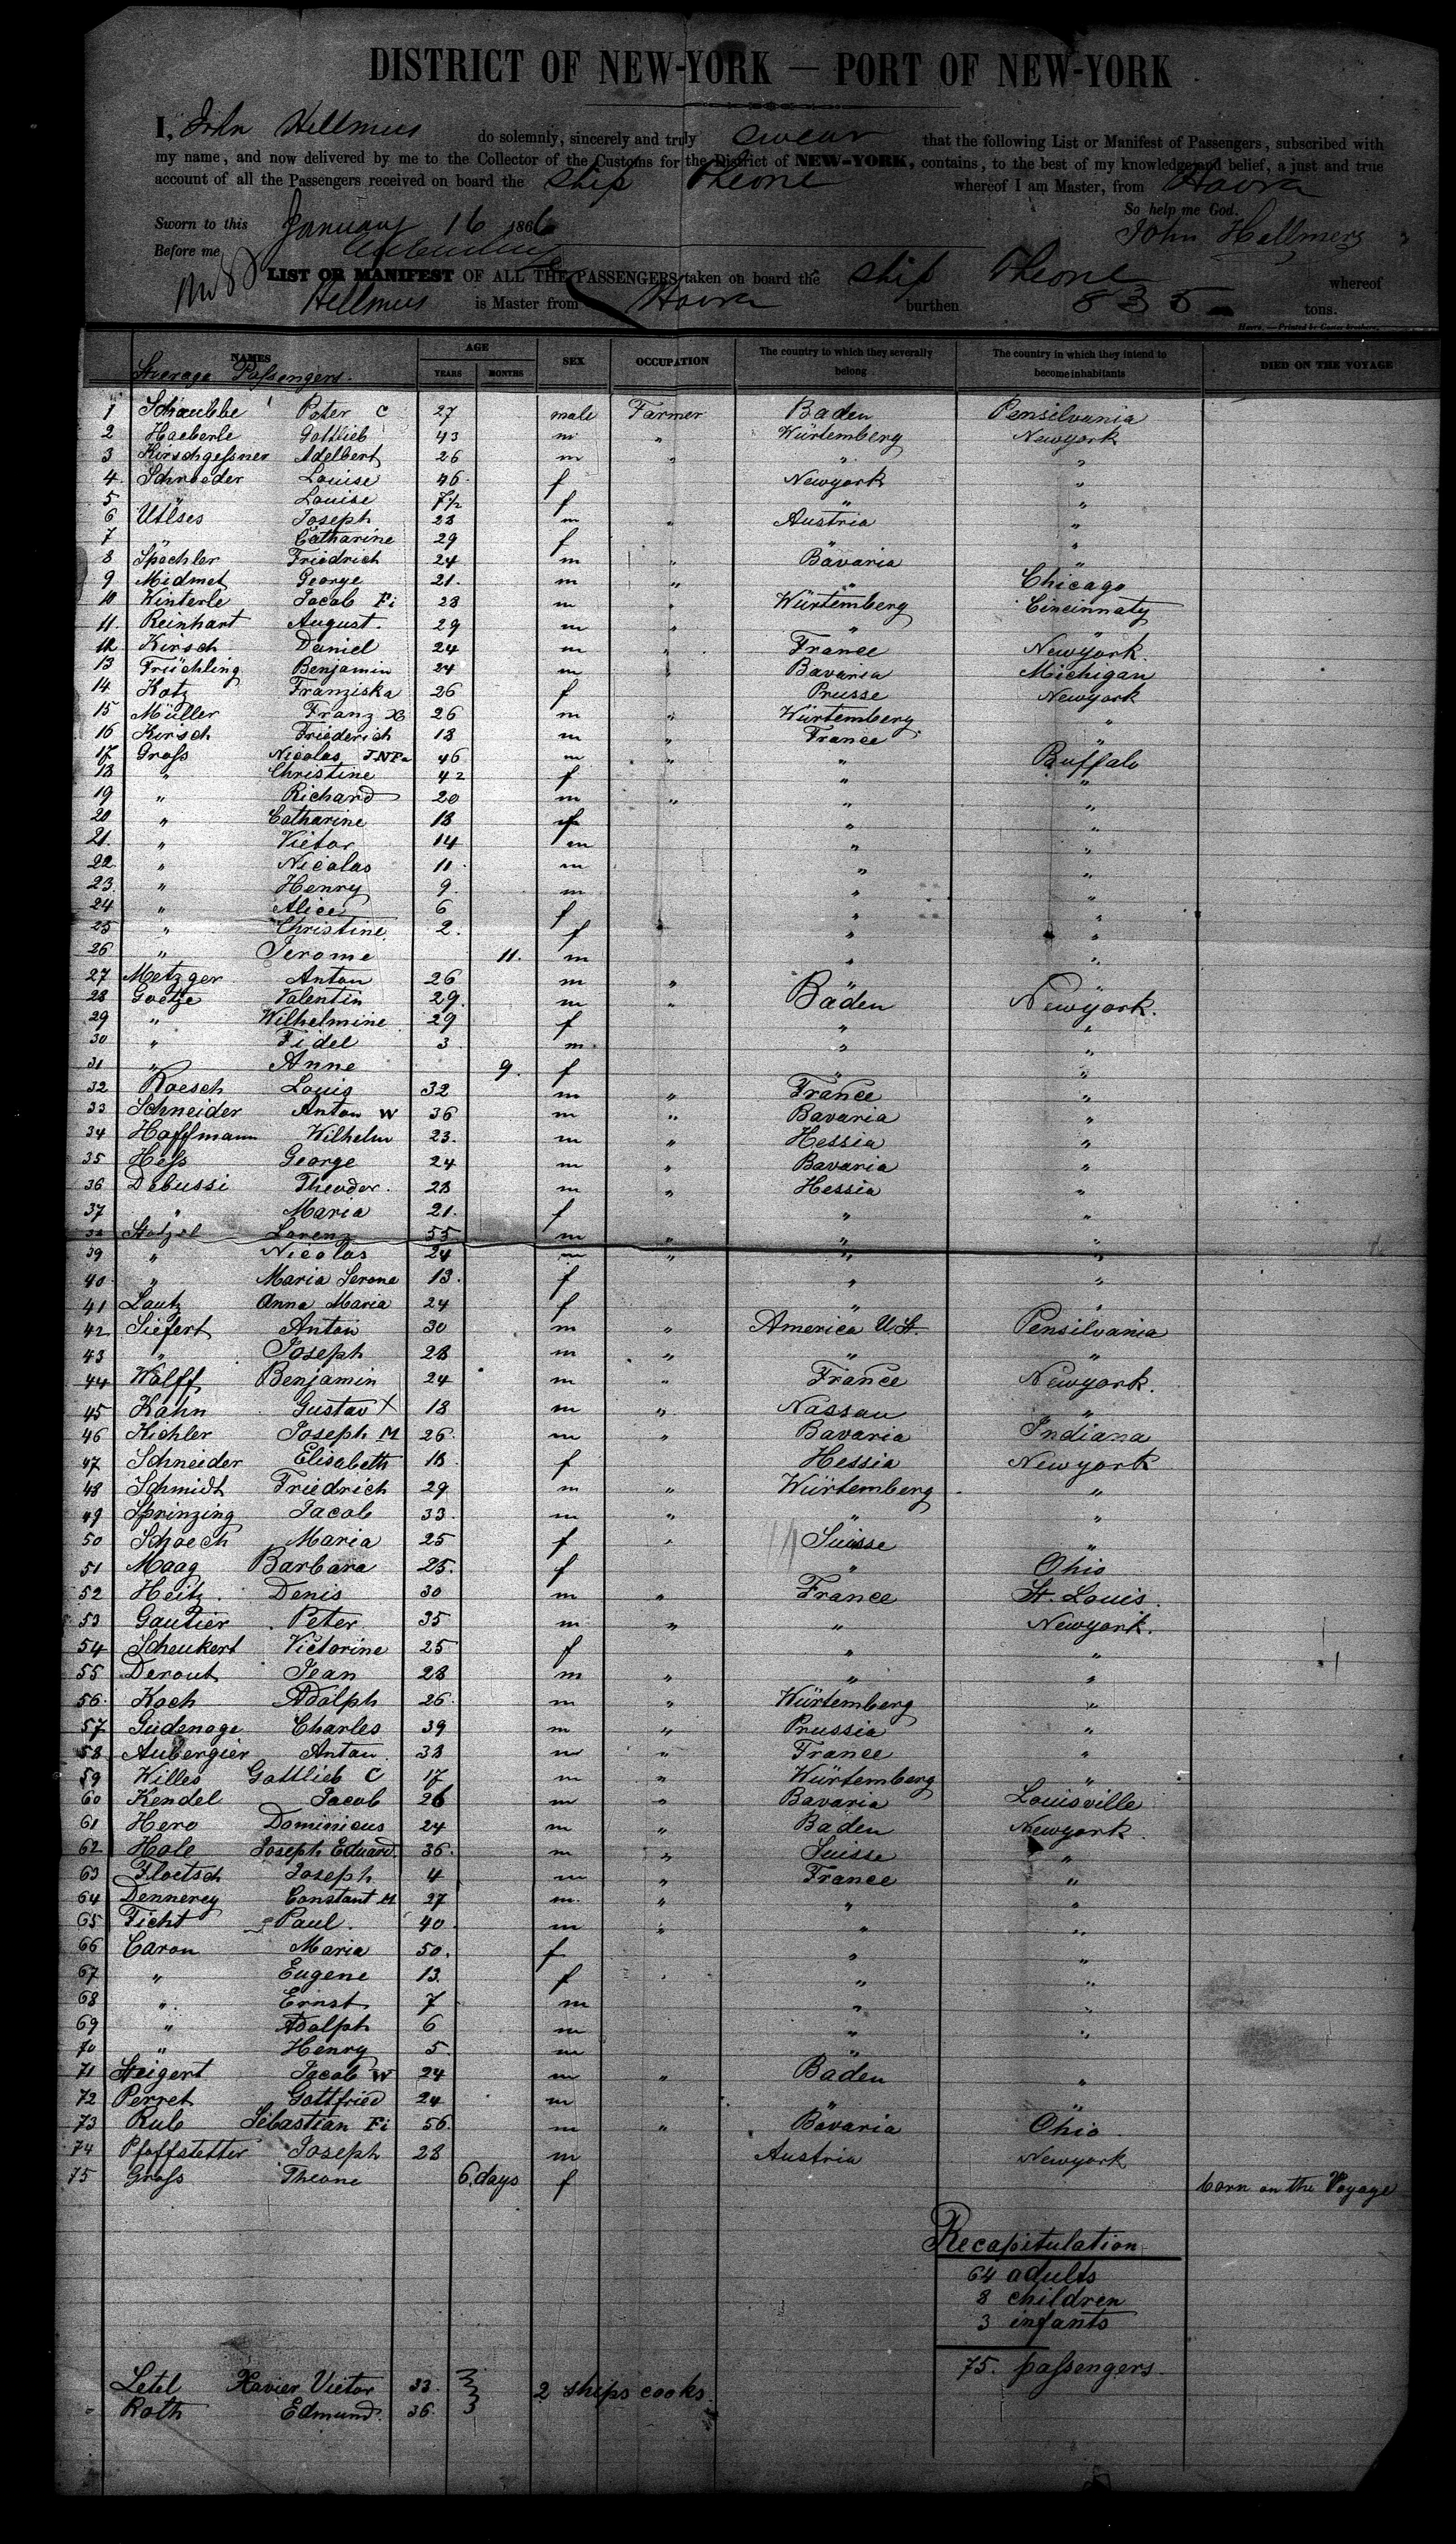 DISTRICT OF NEW-YORK — PORT OF NEW-YORK
I, John Hellmers do solemnly, sincerely and truly swear that the following List or Manifest of Passengers, subscribed with
my name, and now delivered by me to the Collector of the Customs for the District of NEW-YORK, contains, to the best of my knowledge and belief, a just and true
account of all the Passengers received on board the ship Theone whereof I am Master, from Havre
So help me God.
Sworn to this January 16 1866 John Hellmers
Before me
LIST OR MANIFEST OF ALL THE PASSENGERS taken on board the ship Theone whereof
Hellmers is Master from Havre burthen 835 tons.
Havre. — Printed by Coster brothers.
NAMES AGE YEARS MONTHS SEX OCCUPATION The country to which they severally belong The country in which they intend to become inhabitants DIED ON THE VOYAGE
Steerage Passengers.
1 Schaubbe Peter C 27 male Farmer Baden Pensilvania
2 Haeberle Gottlieb 43 m " Würtemberg Newyork
3 Kirschgessner Adelbert 26 m " " "
4 Schroeder Louise 46 f Newyork "
5 " Louise 7½ f " "
6 Utlses Joseph 28 m " Austria "
7 " Catharine 29 f " "
8 Spaehler Friedrich 24 m " Bavaria "
9 Midmet George 21 m " " Chicago
10 Winterle Jacob Fi 28 m " Würtemberg Cincinnaty
11 Reinhart August 29 m " " "
12 Kirsch Daniel 24 m " France Newyork
13 Früchling Benjamin 24 m " Bavaria Michigan
14 Kotz Franziska 26 f Prusse Newyork
15 Müller Franz X 26 m " Würtemberg "
16 Kirsch Friederich 18 m " France "
17 Gross Nicolas INPa 46 m " " Buffalo
18 " Christine 42 f " "
19 " Richard 20 m " " "
20 " Catharine 18 f " "
21 " Victor 14 m " "
22 " Nicolas 11 m " "
23 " Henry 9 m " "
24 " Alice 6 f " "
25 " Christine 2 f " "
26 " Jerome 11. m " "
27 Metzger Anton 26 m " " "
28 Goetze Valentin 29 m " Baden Newyork
29 " Wilhelmine 29 f " "
30 " Fidel 3 m " "
31 " Anne 9. f " "
32 Roesch Louis 32 m " France "
33 Schneider Anton W 36 m " Bavaria "
34 Hoffmann Wilhelm 23 m " Hessia "
35 Hess George 24 m " Bavaria "
36 Debussi Theodor 28 m " Hessia "
37 " Maria 21 f " "
38 Lorenz 55 m " " "
39 " Nicolas 24 m " " "
40 " Maria Serone 13 f " "
41 Lautz Anna Maria 24 f " "
42 Siefert Anton 30 m " America U St. Pensilvania
43 " Joseph 28 m " " "
44 Wolff Benjamin 24 m " France Newyork.
45 Kahn Gustav X 18 m " Nassau "
46 Kichler Joseph M 26 m " Bavaria Indiana
47 Schneider Elisabeth 18 f Hessia Newyork
48 Schmidt Friedrich 29 m " Würtemberg "
49 Sprinzing Jacob 33 m " " "
50 Schoech Maria 25 f " Suisse "
51 Maag Barbara 25 f " Ohio
52 Heitz Denis 30 m " France St. Louis
53 Gautier Peter 35 m " " Newyork.
54 Scheukert Victorine 25 f " "
55 Derout Jean 28 m " " "
56 Koch Adolph 26 m " Würtemberg "
57 Gudenoge Charles 39 m " Prussia "
58 Aubergier Anton 38 m " France "
59 Willes Gottlieb C 17 m " Würtemberg "
60 Kendel Jacob 26 m " Bavaria Louisville
61 Hero Dominicus 24 m " Baden Newyork
62 Hole Joseph Eduard 36 m " Suisse "
63 Floetsch Joseph 4 m " France "
64 Dennerey Constant M 27 m " " "
65 Ficht Paul 40 m " " "
66 Caron Maria 50 f " "
67 " Eugene 13 f " "
68 " Ernst 7 m " "
69 " Adolph 6 m " "
70 " Henry 5 m " "
71 Steigert Jacob W 24 m " Baden "
72 Perret Gottfried 24 m " "
73 Rub Sebastian Fi 56 m " Bavaria Ohio
74 Pfaffstetter Joseph 28 m Austria Newyork
75 Gross Theone 6 days f born on the Voyage
Recapitulation
64 adults
8 children
3 infants
75. passengers
Letel Xavier Victor 33 2 ships cooks
Roth Edmund 36